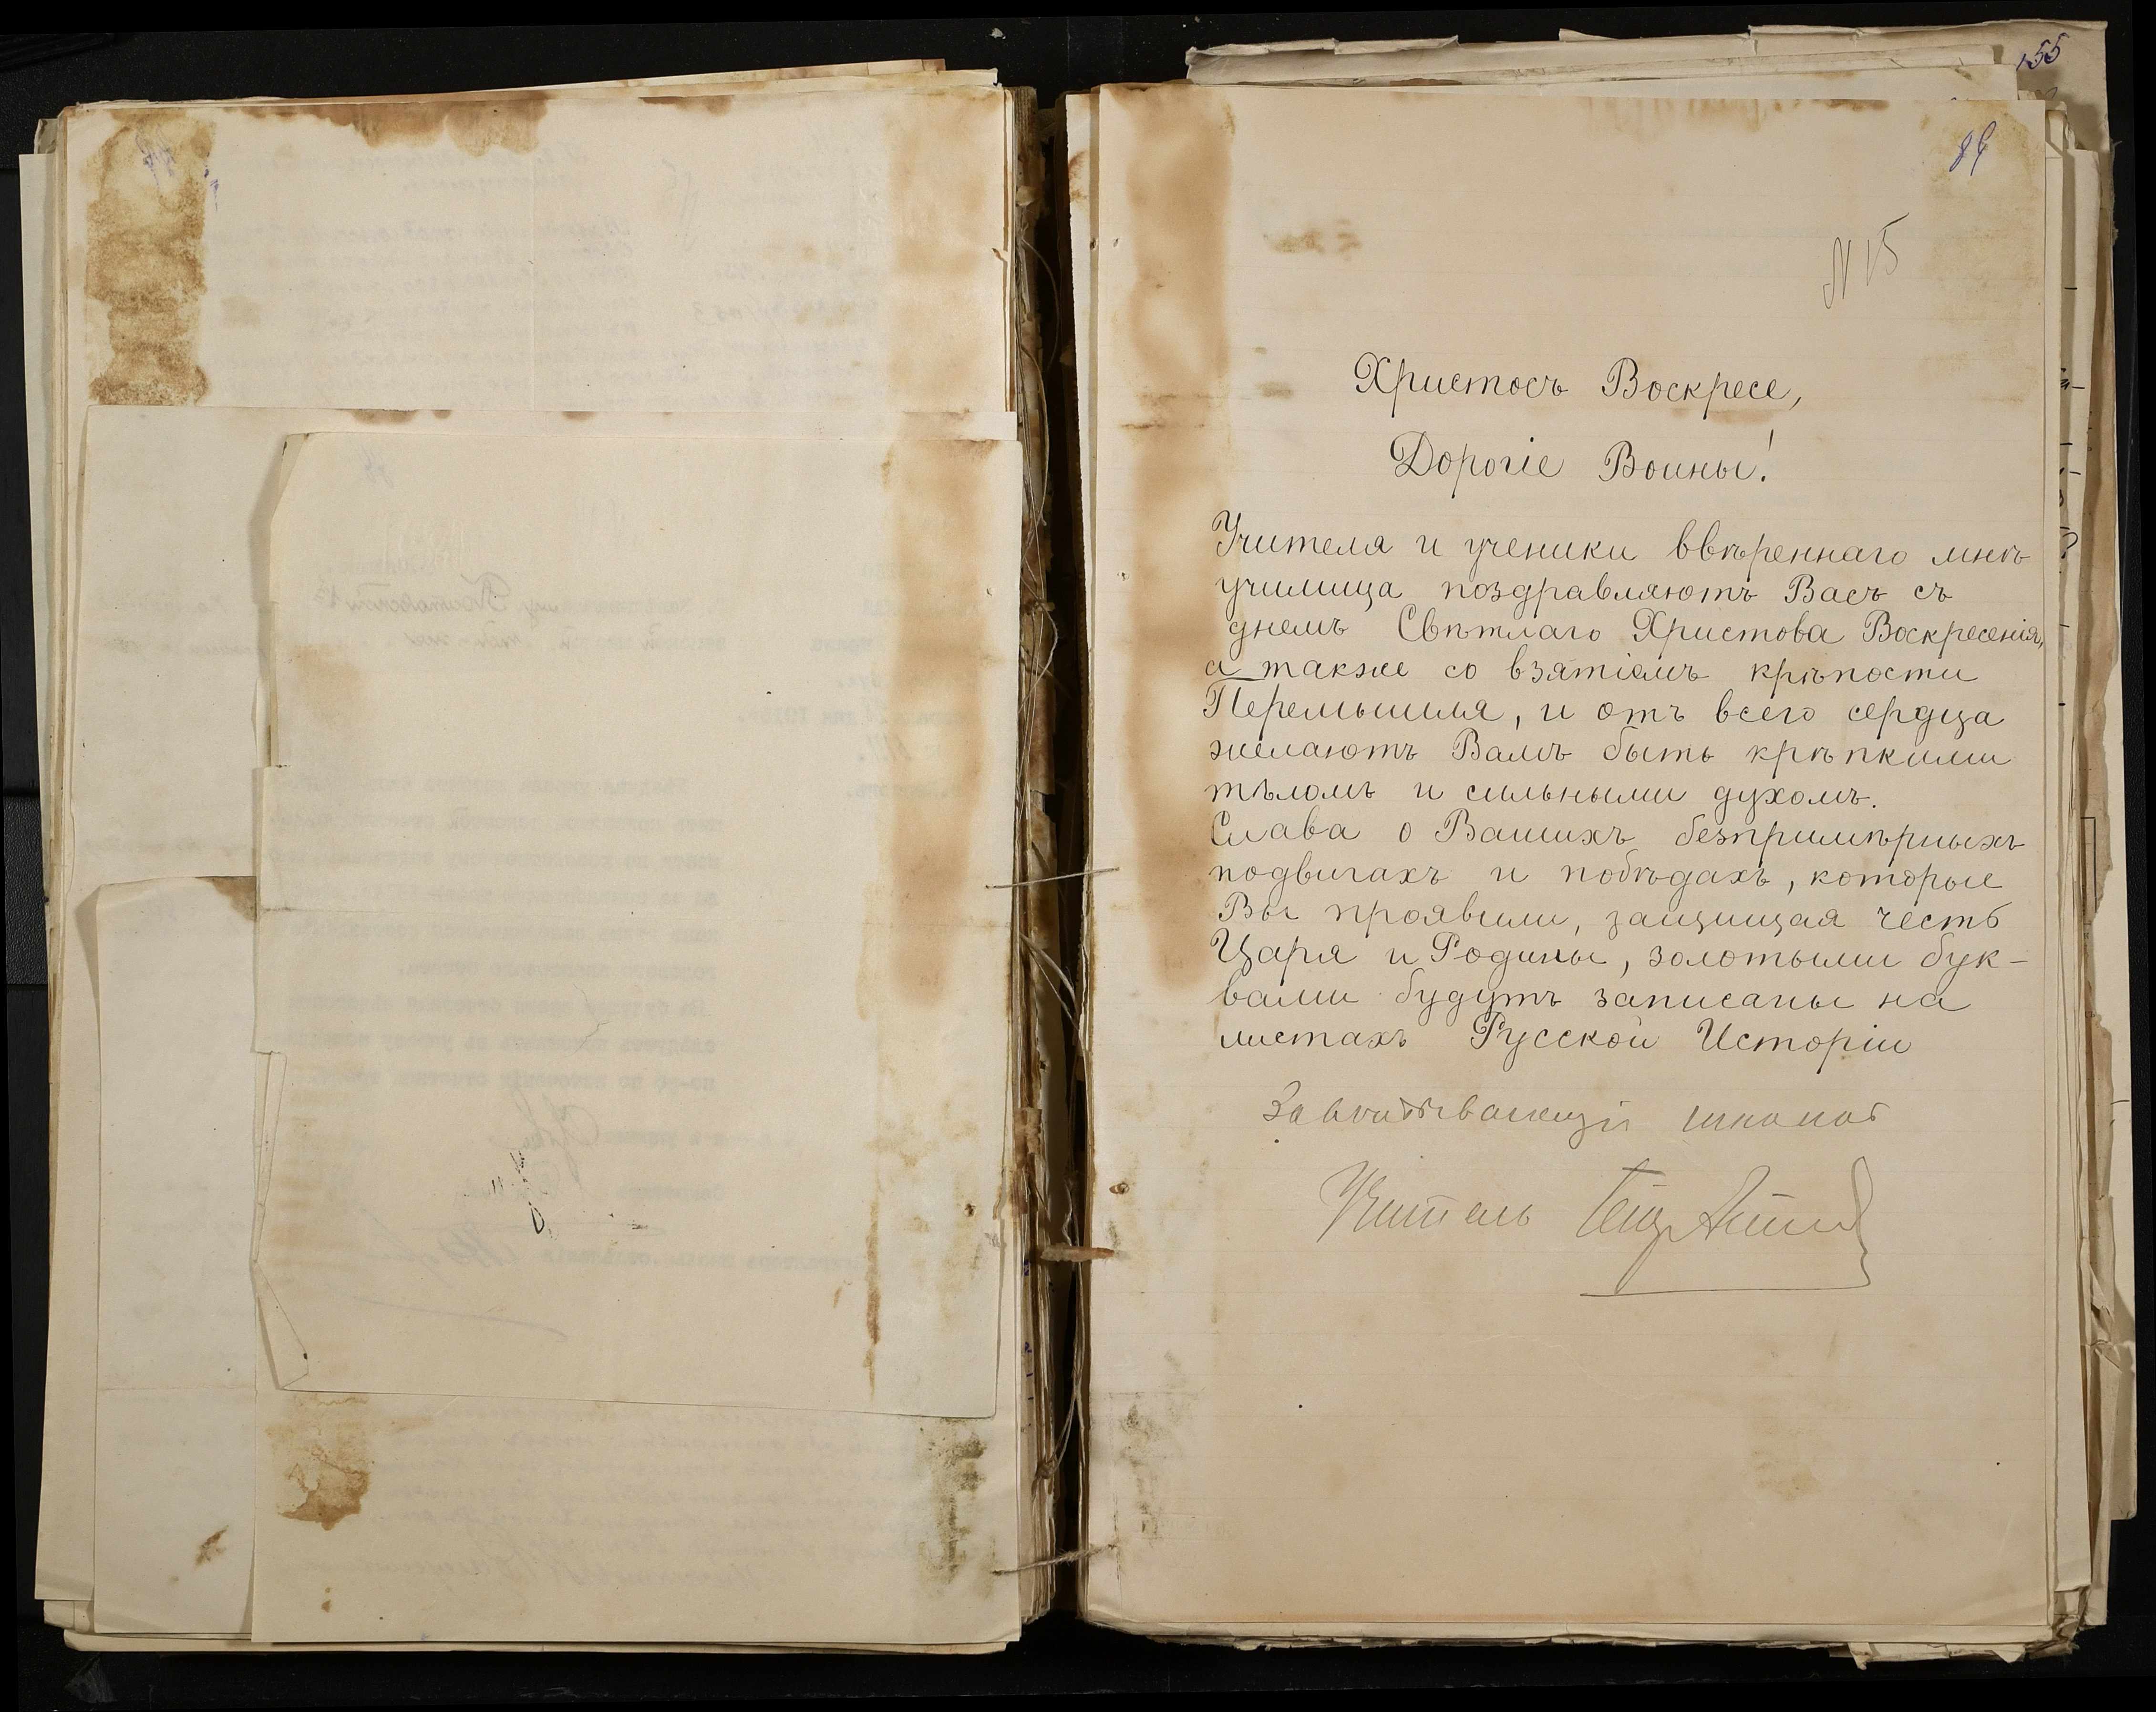 155
89
N 15
Христосъ Воскресе,
Дорогіе Воины!
Учителя и ученики ввѣреннаго мнѣ
училища поздравляютъ Васъ съ
днемъ Свѣтлаго Христова Воскресенія,
а также со взятіемъ крѣпости
Перемышля, и отъ всего сердца
желаютъ Вамъ быть крѣпкими
тѣломъ и сильными духомъ.
Слава о Вашихъ безпримѣрныхъ
подвигахъ и побѣдахъ, которые
Вы проявили, защищая честь
Царя и Родины, золотыми бук-
вами будутъ записаны на
листахъ Русской Исторіи
Завѣдывающій школой
Учитель